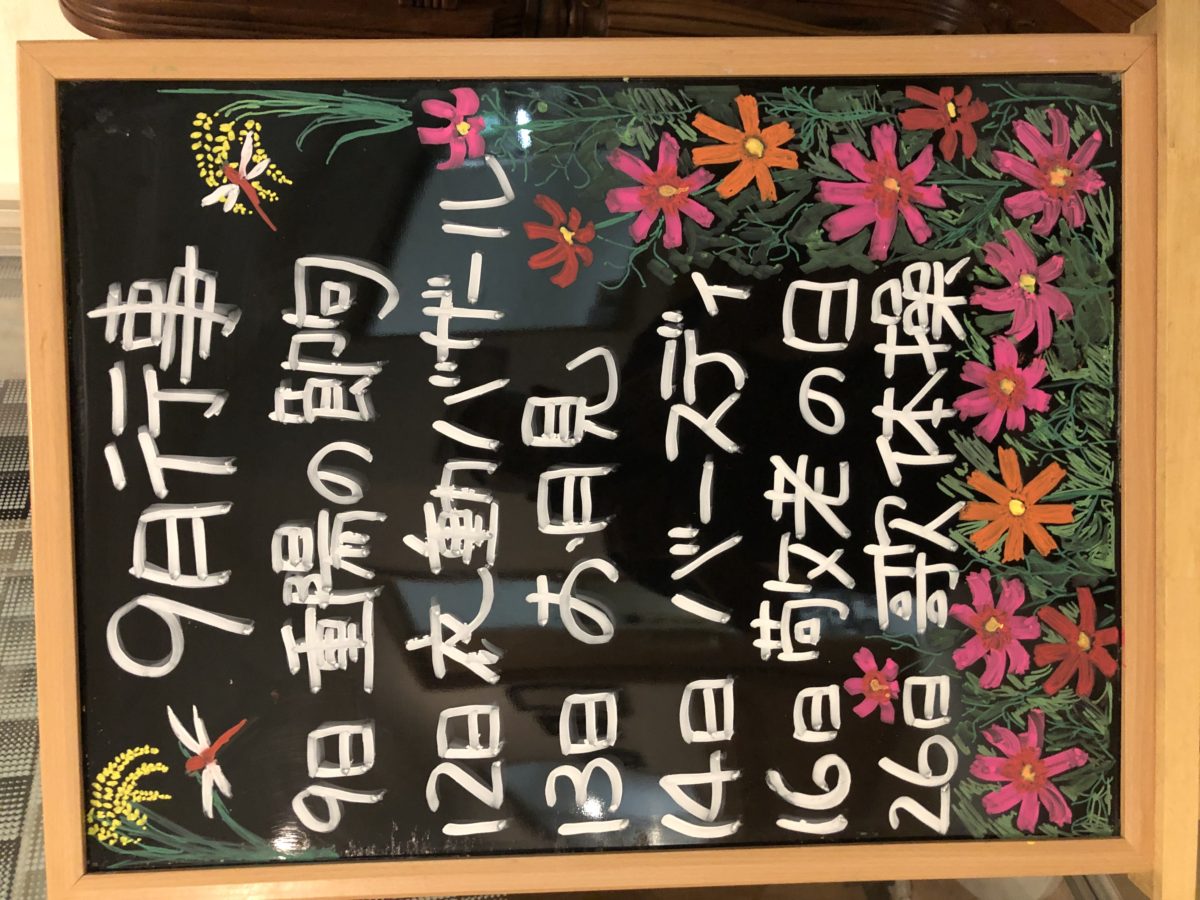 9月行事
9日 重陽の節句
12日 衣動バザール
13日 お月見
14日 バースディ
16日 敬老の日
26日 歌体操